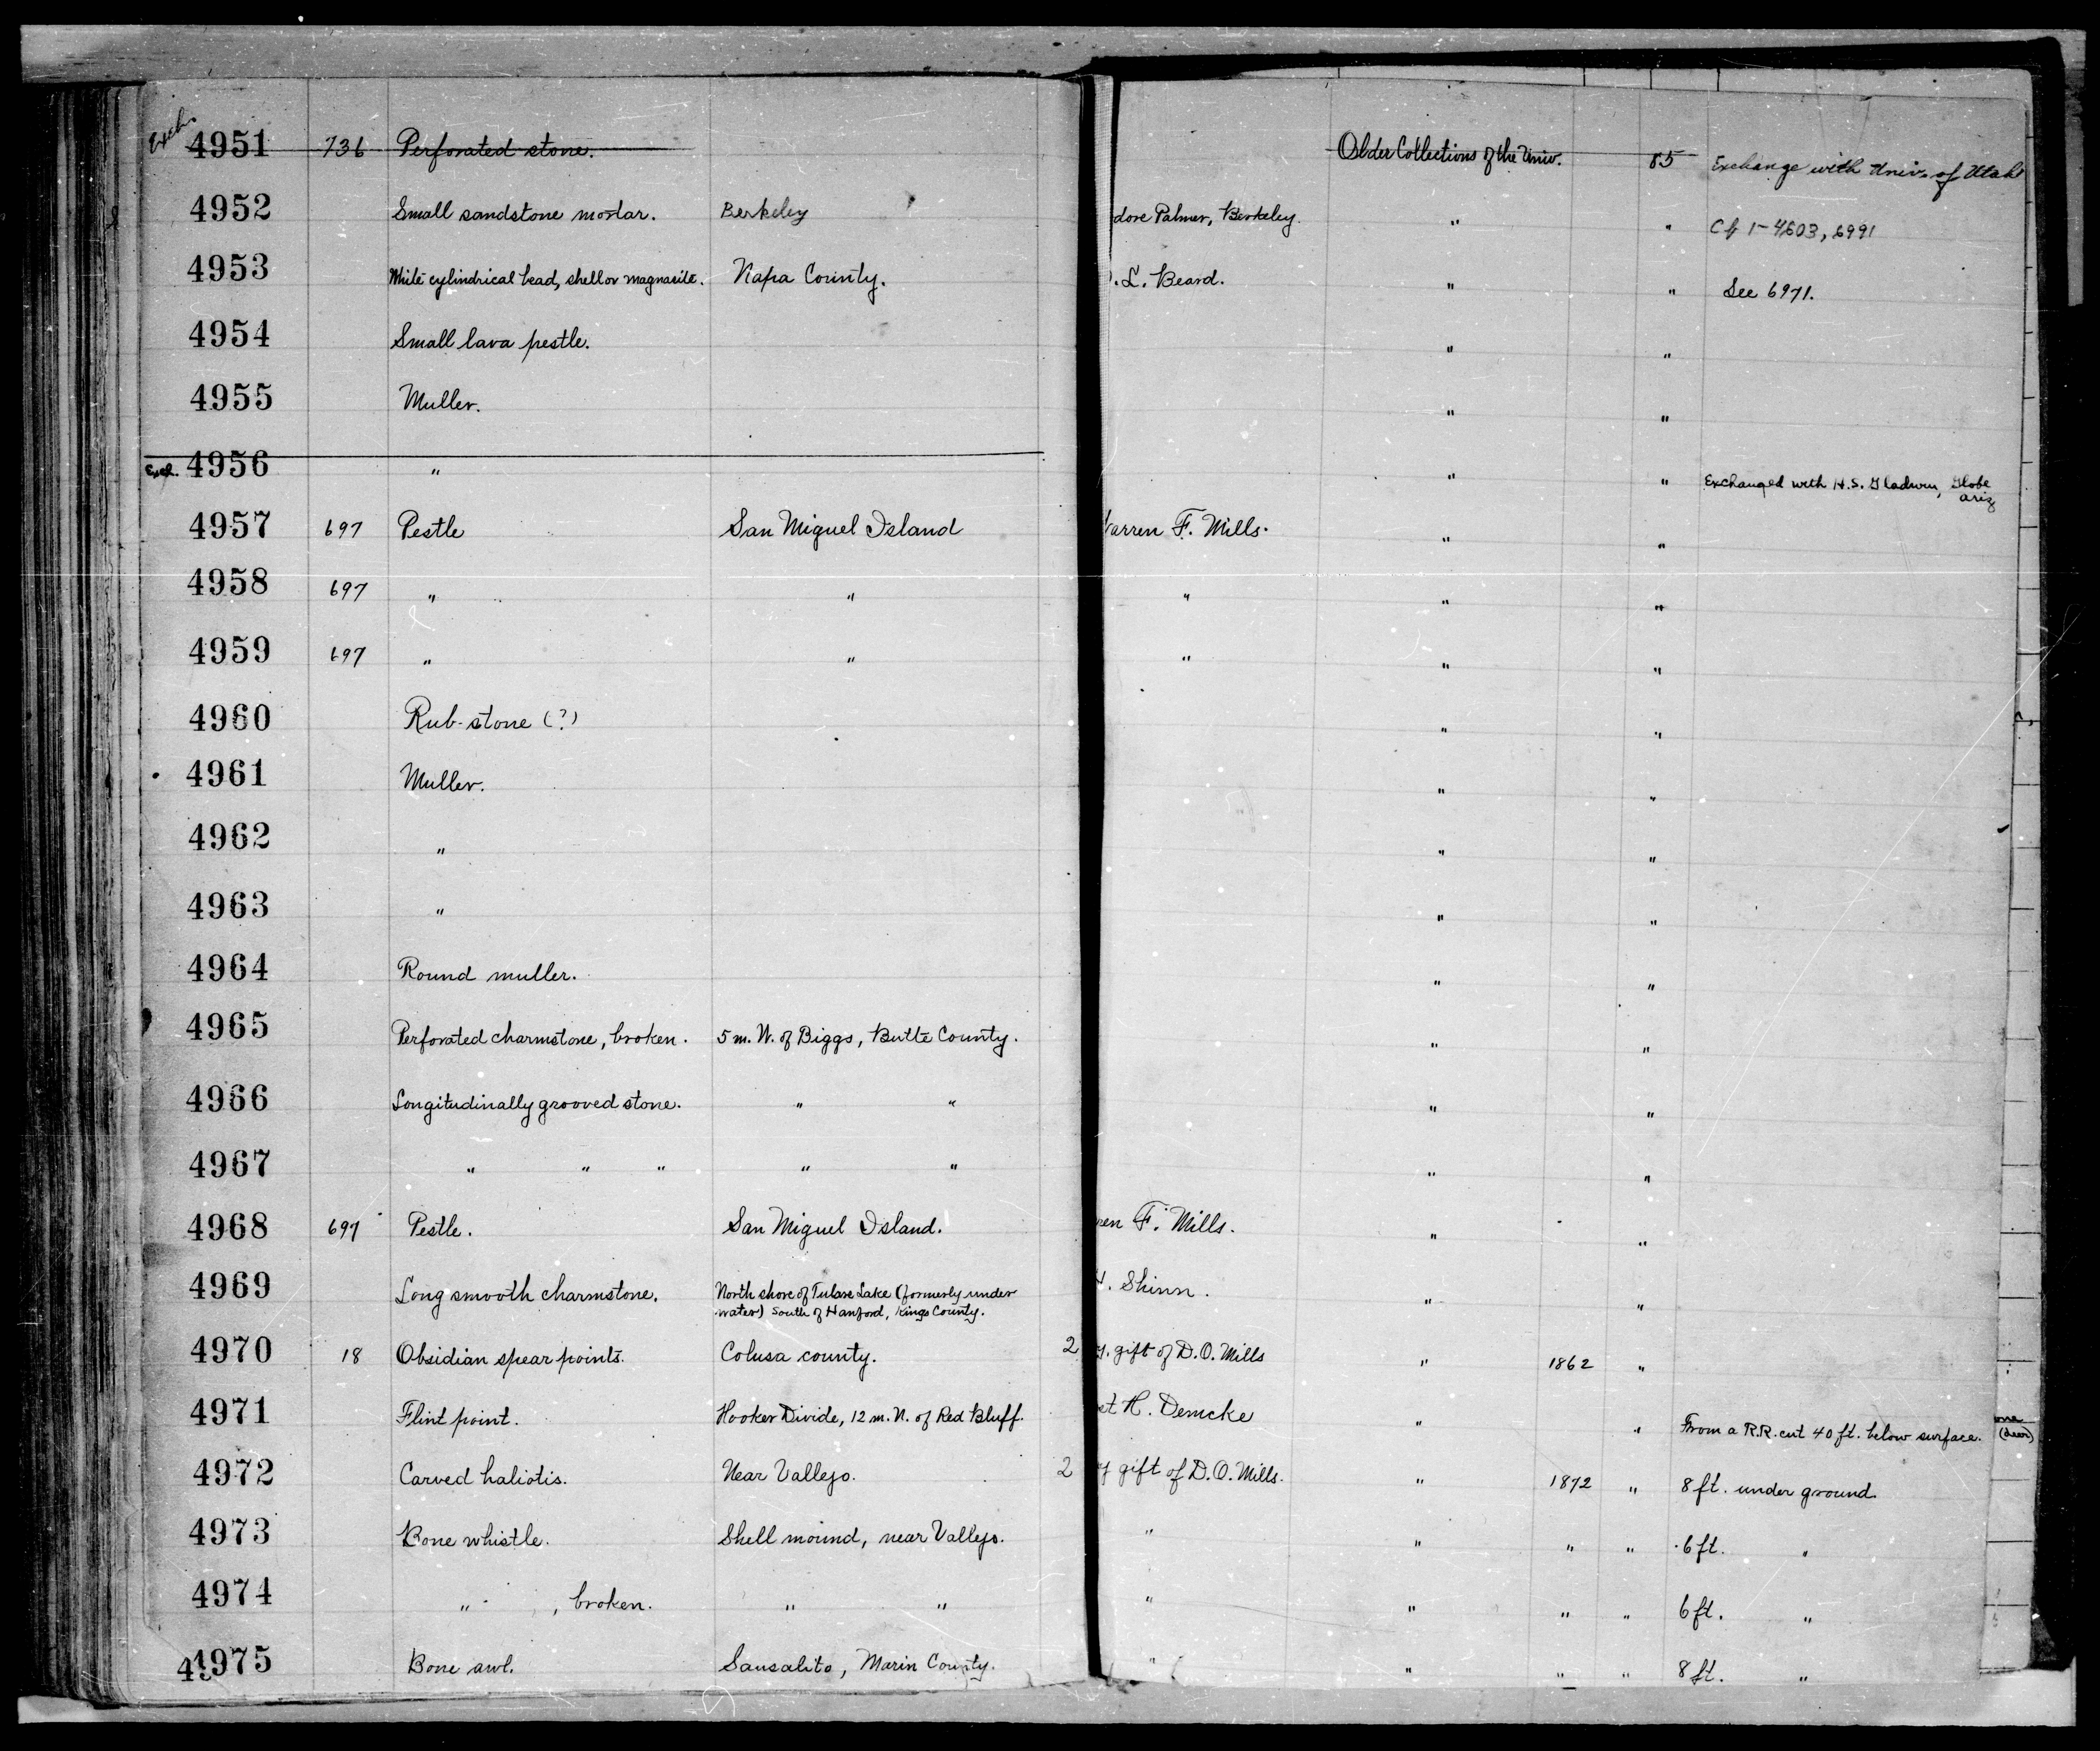 Exch. 4951 736 Perforated stone. Older Collections of the Univ. 85 Exchange with Univ. of Utah
4952 Small sandstone mortar. Berkeley dore Palmer, Berkeley. " " Cf 1-4603, 6991
4953 White cylindrical bead, shell or magnasite. Napa County. . L. Beard. " " See 6971.
4954 Small lava pestle. " "
4955 Muller. " "
Exch. 4956 " " " Exchanged with H.S. Gladwin, Globe
Ariz
4957 697 Pestle San Miguel Island arren F. Mills. " "
4958 697 " " " " "
4959 697 " " " " "
4960 Rub-stone (?) " "
4961 Muller. " "
4962 " " "
4963 " " "
4964 Round muller. " "
4965 Perforated charmstone, broken. 5 m. W. of Biggs, Butte County. " "
4966 Longitudinally grooved stone. " " " "
4967 " " " " " " "
4968 697 Pestle. San Miguel Island. ren F. Mills. " "
4969 Long smooth charmstone. North shore of Tulare Lake (formerly under
water) South of Hanford, Kings County. H. Shinn. " "
4970 18 Obsidian spear points. Colusa county. 2 y. gift of D.O. Mills " 1862 "
4971 Flint point. Hooker Divide, 12 m. N. of Red Bluff. et H. Demcke " " From a R.R. cut 40 ft. below surface. (deer)
4972 Carved haliotis. Near Vallejo. 2 y gift of D.O. Mills. " 1872 " 8 ft. under ground
4973 Bone whistle. Shell mound, near Vallejo. " " " " 6 ft. "
4974 " , broken. " " " " " " 6 ft. "
4975 Bone awl. Sausalito, Marin County. " " " " 8 ft. "